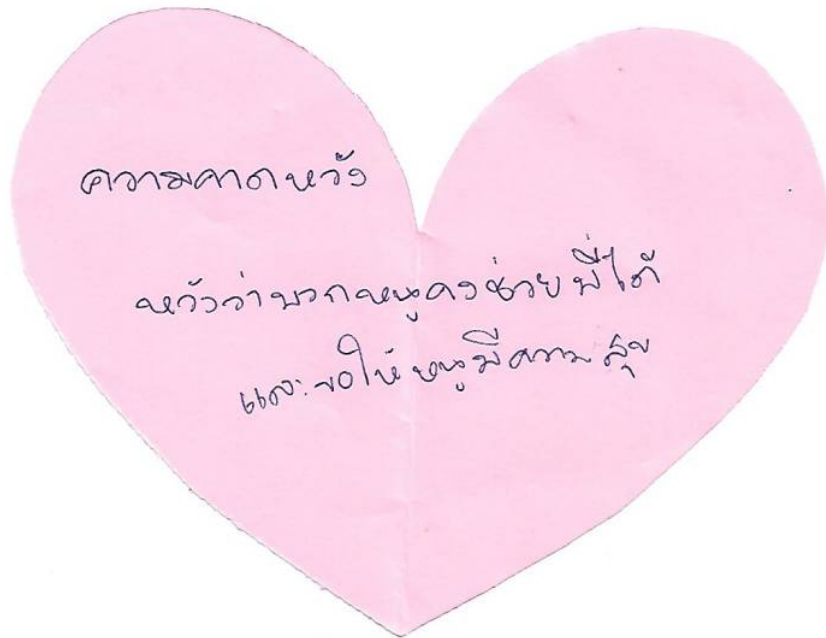 ความคาดหวัง
หวังว่าพวกหนูคงช่วยพี่ได้
และขอให้หนูมีความสุข